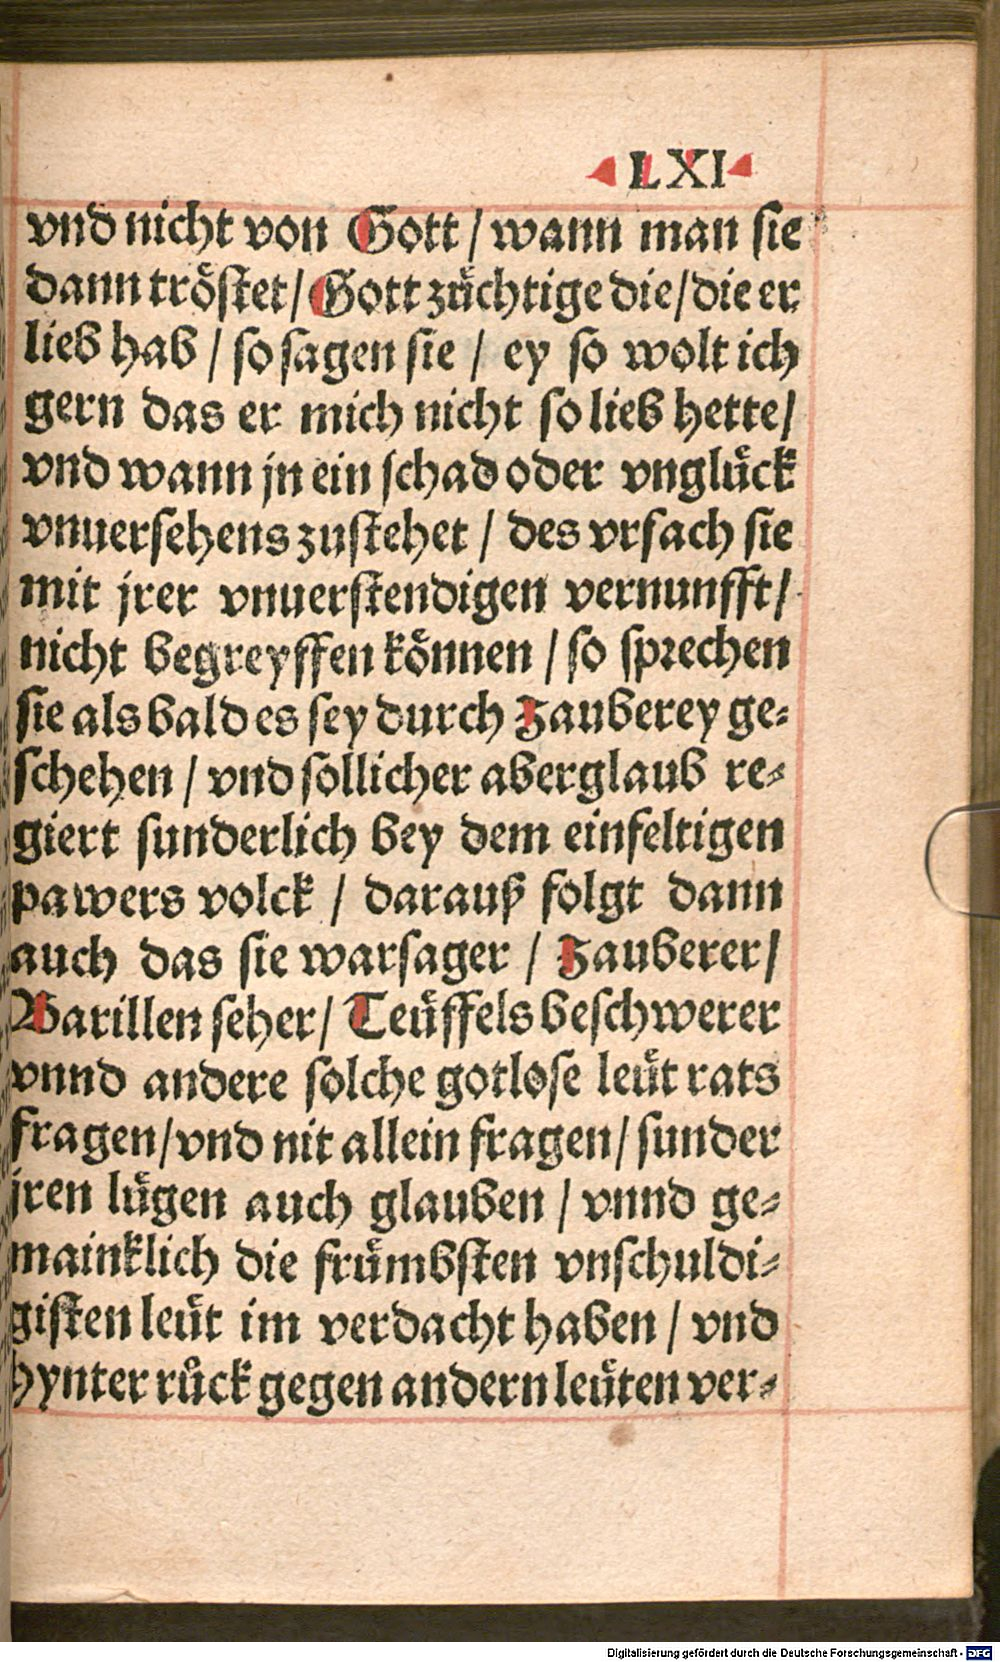 LXI
vnd nicht von Gott / wann man sie
dann tröstet / Gott züchtige die / die er
lieb hab / so sagen sie / ey so wolt ich
gern das er mich nicht so lieb hette /
vnd wann jn ein schad oder vnglück
vnuersehens zustehet / des vrsach sie
mit jrer vnuerstendigen vernunfft /
nicht begreyffen können / so sprechen
sie als bald es sey durch Zauberey ge-
schehen / vnd sollicher aberglaub re-
giert sunderlich bey dem einfeltigen
pawers volck / darauß folgt dann
auch das sie warsager / Zauberer /
Barillen seher / Teüffels beschwerer
vnnd andere solche gotlose leüt rats
fragen / vnd nit allein fragen / sunder
jren lügen auch glauben / vnnd ge-
mainklich die frümbsten vnschuldi-
gisten leüt im verdacht haben / vnd
hynter růck gegen andern leüten ver-
Digitalisierung gefördert durch die Deutsche Forschungsgemeinschaft - DFG